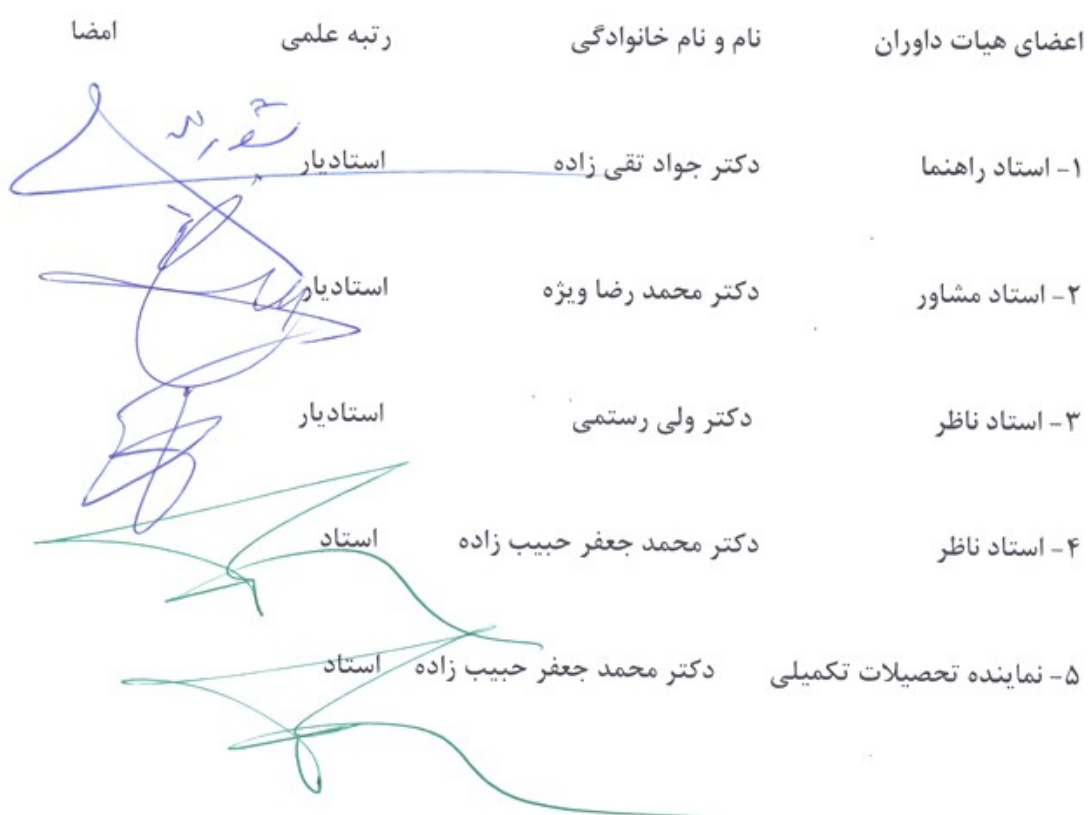 اعضای هیات داوران نام و نام خانوادگی رتبه علمی امضا
۱- استاد راهنما دکتر جواد تقی زاده استادیار
۲- استاد مشاور دکتر محمد رضا ویژه استادیار
۳- استاد ناظر دکتر ولی رستمی استادیار
۴- استاد ناظر دکتر محمد جعفر حبیب زاده استاد
۵- نماینده تحصیلات تکمیلی دکتر محمد جعفر حبیب زاده استاد